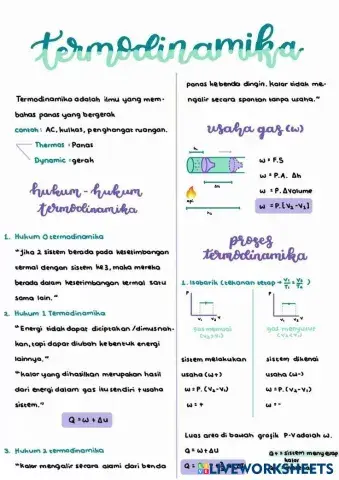 termodinamika
Termodinamika adalah ilmu yang mem-
bahas panas yang bergerak
contoh : AC, kulkas, penghangat ruangan.
Thermos = Panas
Dynamic = gerak
hukum - hukum
termodinamika
1. Hukum 0 termodinamika
"Jika 2 sistem berada pada kesetimbangan
termal dengan sistem ke3, maka mereka
berada dalam kesetimbangan termal satu
sama lain."
2. Hukum 1 Termodinamika
"Energi tidak dapat diciptakan/dimusnah-
kan, tapi dapat diubah ke bentuk energi
lainnya."
"kalor yang dihasilkan merupakan hasil
dari energi dalam gas itu sendiri + usaha
sistem."
Q = W + ΔU
3. Hukum 2 termodinamika
"kalor mengalir secara alami dari benda
panas ke benda dingin, kalor tidak me-
ngalir secara spontan tanpa usaha."
usaha gas (w)
api
W = F.S
W = P.A. Δh
W = P. ΔVolume
W = P.[V₂-V₁]
proses
termodinamika
1. Isobarik (tekanan tetap → V₁/T₁ = V₂/T₂)
P
V₁ V₂ V
P
V₂ V₁ V
gas memuai
(V₂>V₁)
gas menyusut
sistem melakukan
usaha (w+)
W = P. (V₂-V₁)
W = +
sistem dikenai
usaha (w-)
W = P. (V₂-V₁)
W = -
Luas area di bawah grafik P-V adalah W.
Q+ = sistem menyerap
kalor
LIVEWORKSHEETS